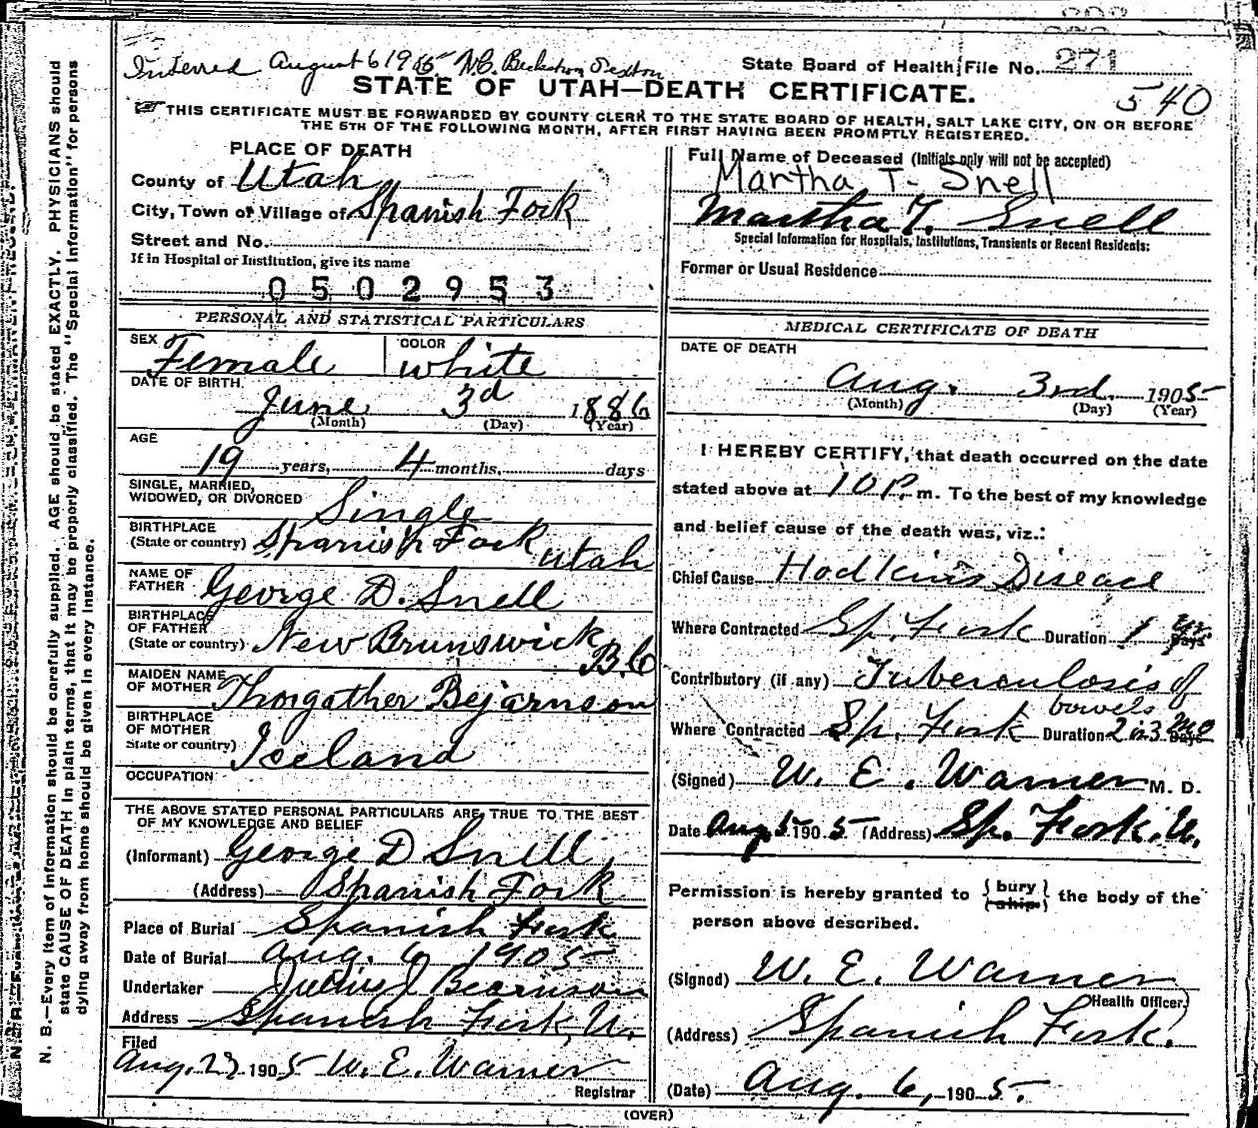 Interred August 6 1905 Sexton
State Board of Health File No. 271
STATE OF UTAH—DEATH CERTIFICATE.
540
THIS CERTIFICATE MUST BE FORWARDED BY COUNTY CLERK TO THE STATE BOARD OF HEALTH, SALT LAKE CITY, ON OR BEFORE
THE 5TH OF THE FOLLOWING MONTH, AFTER FIRST HAVING BEEN PROMPTLY REGISTERED.
PLACE OF DEATH
County of Utah
City, Town of Village of Spanish Fork
Street and No.
If in Hospital or Institution, give its name
0502953
PERSONAL AND STATISTICAL PARTICULARS
SEX Female COLOR white
DATE OF BIRTH
June 3d 1886
(Month) (Day) (Year)
AGE
19 years, 4 months, days
SINGLE, MARRIED,
WIDOWED, OR DIVORCED Single
BIRTHPLACE
(State or country) Spanish Fork Utah
NAME OF
FATHER George D. Snell
BIRTHPLACE
OF FATHER
(State or country) New Brunswick B.C
MAIDEN NAME
OF MOTHER Thorgather Bejarnson
BIRTHPLACE
OF MOTHER
State or country) Iceland
OCCUPATION
THE ABOVE STATED PERSONAL PARTICULARS ARE TRUE TO THE BEST
OF MY KNOWLEDGE AND BELIEF
(Informant) George D Snell
(Address) Spanish Fork
Place of Burial Spanish Fork
Date of Burial Aug. 6 1905
Undertaker Bearnson
Address Spanish Fork, U.
Filed
Aug. 23 1905 W. E. Warner
Registrar
Full Name of Deceased (Initials only will not be accepted)
Martha T. Snell
Martha T. Snell
Special Information for Hospitals, Institutions, Transients or Recent Residents:
Former or Usual Residence
MEDICAL CERTIFICATE OF DEATH
DATE OF DEATH
Aug. 3rd. 1905
(Month) (Day) (Year)
I HEREBY CERTIFY, that death occurred on the date
stated above at 10 P. m. To the best of my knowledge
and belief cause of the death was, viz.:
Chief Cause Hodkins Disease
Where Contracted Sp. Fork Duration 1 yr
Contributory (if any) Tuberculosis of
bowels
Where Contracted Sp. Fork Duration 2 or 3 mo
(Signed) W. E. Warner M. D.
Date Aug 5 1905 (Address) Sp. Fork. U.
Permission is hereby granted to { bury
ship } the body of the
person above described.
(Signed) W. E. Warner
Health Officer)
(Address) Spanish Fork.
(Date) Aug. 6, 1905.
(OVER)
N. B.—Every item of information should be carefully supplied. AGE should be stated EXACTLY. PHYSICIANS should
state CAUSE OF DEATH in plain terms, that it may be properly classified. The "Special Information" for persons
dying away from home should be given in every instance.